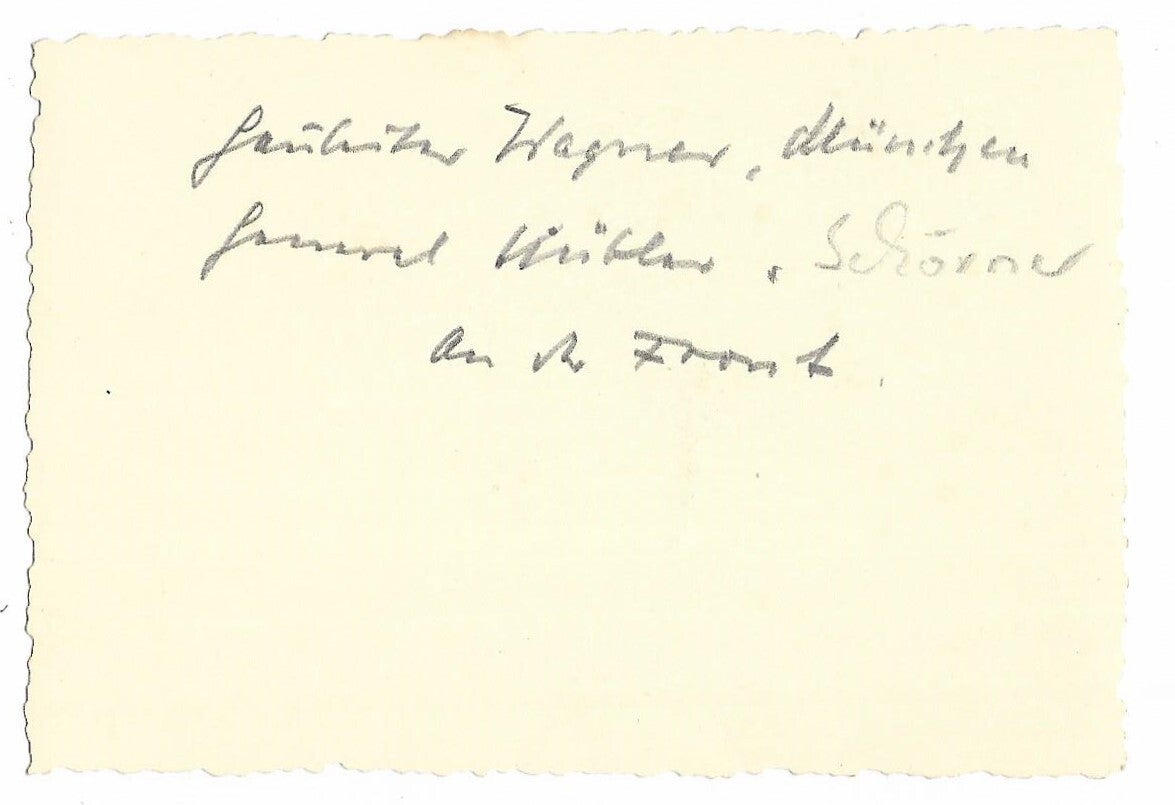 Gauleiter Wagner, München
General Kübler, Schörner
An der Front.